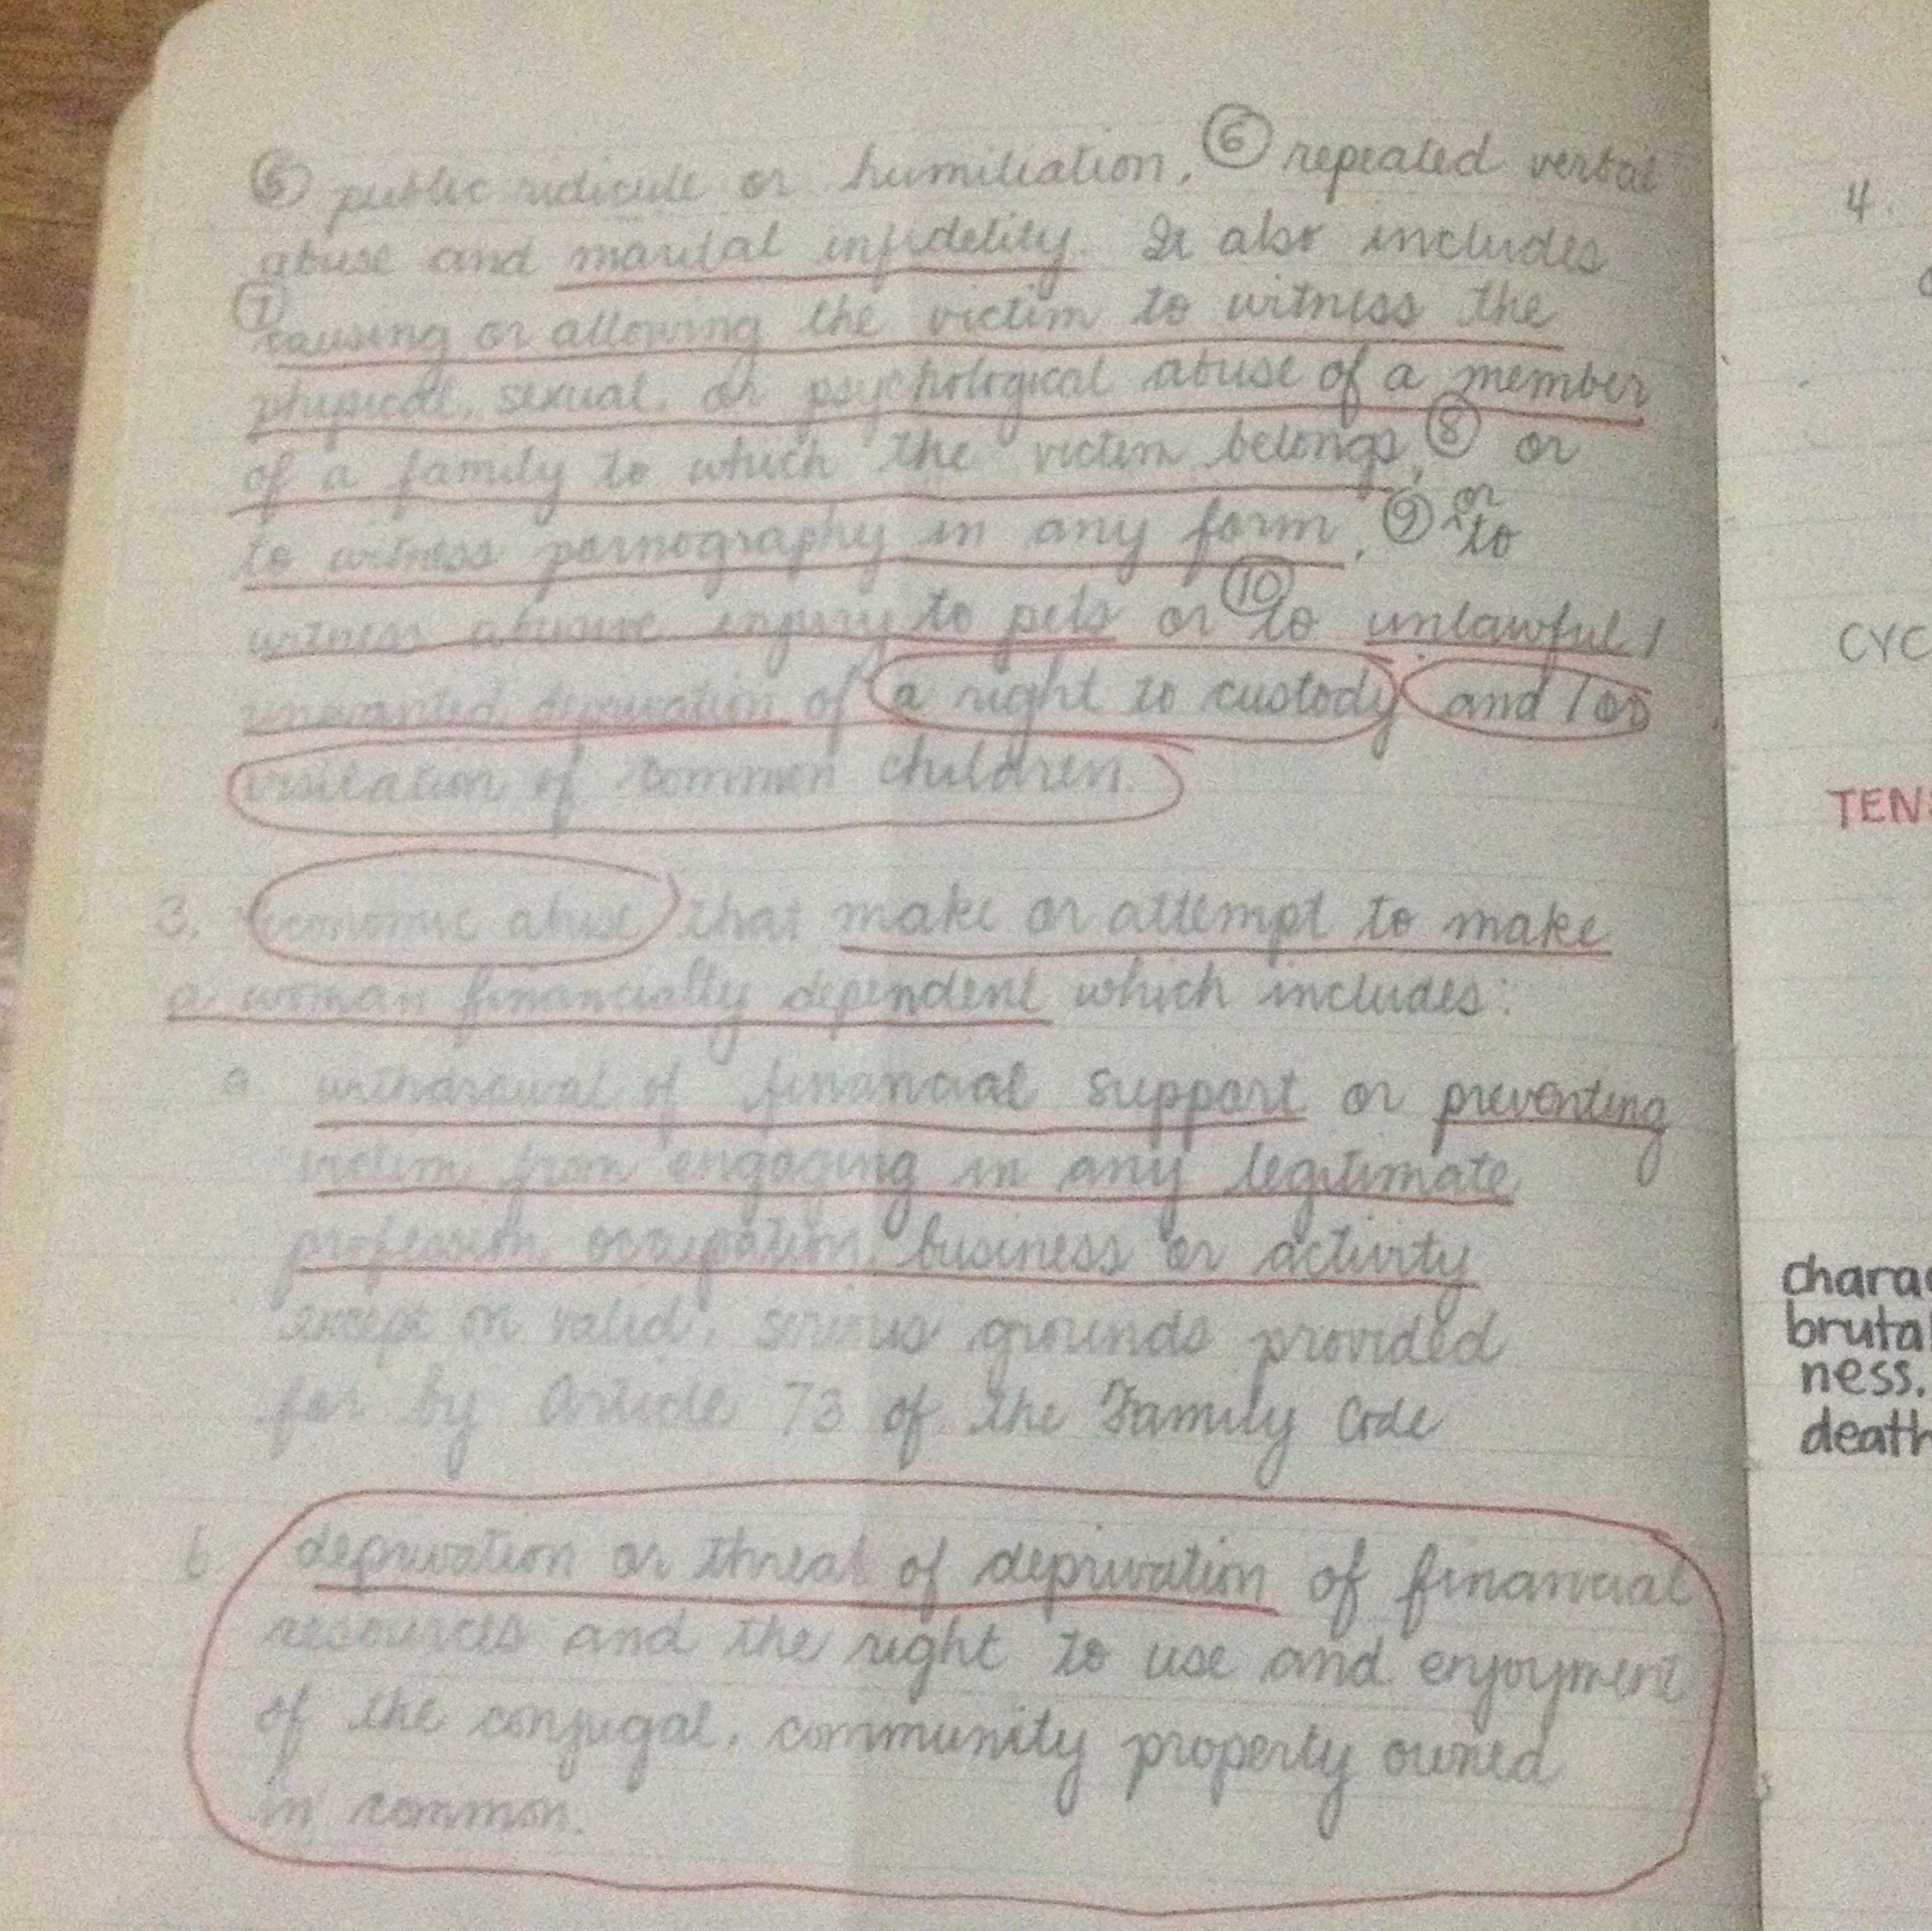 ⑤ public ridicule or humiliation, ⑥ repeated verbal
abuse and marital infidelity. It also includes
⑦ causing or allowing the victim to witness the
physical, sexual, or psychological abuse of a member
of a family to which the victim belongs, ⑧ or
to witness pornography in any form, ⑨ or to
witness abusive injury to pets or ⑩ to unlawful /
unwanted deprivation of a right to custody and / or
visitation of common children.
3. economic abuse that make or attempt to make
a woman financially dependent which includes:
a withdrawal of financial support or preventing
victim from engaging in any legitimate
profession, occupation, business or activity
except on valid, serious grounds provided
for by Article 73 of the Family Code
b deprivation or threat of deprivation of financial
resources and the right to use and enjoyment
of the conjugal, community property owned
in common.
4.
CYC
TENS
charac
brutal
ness.
death